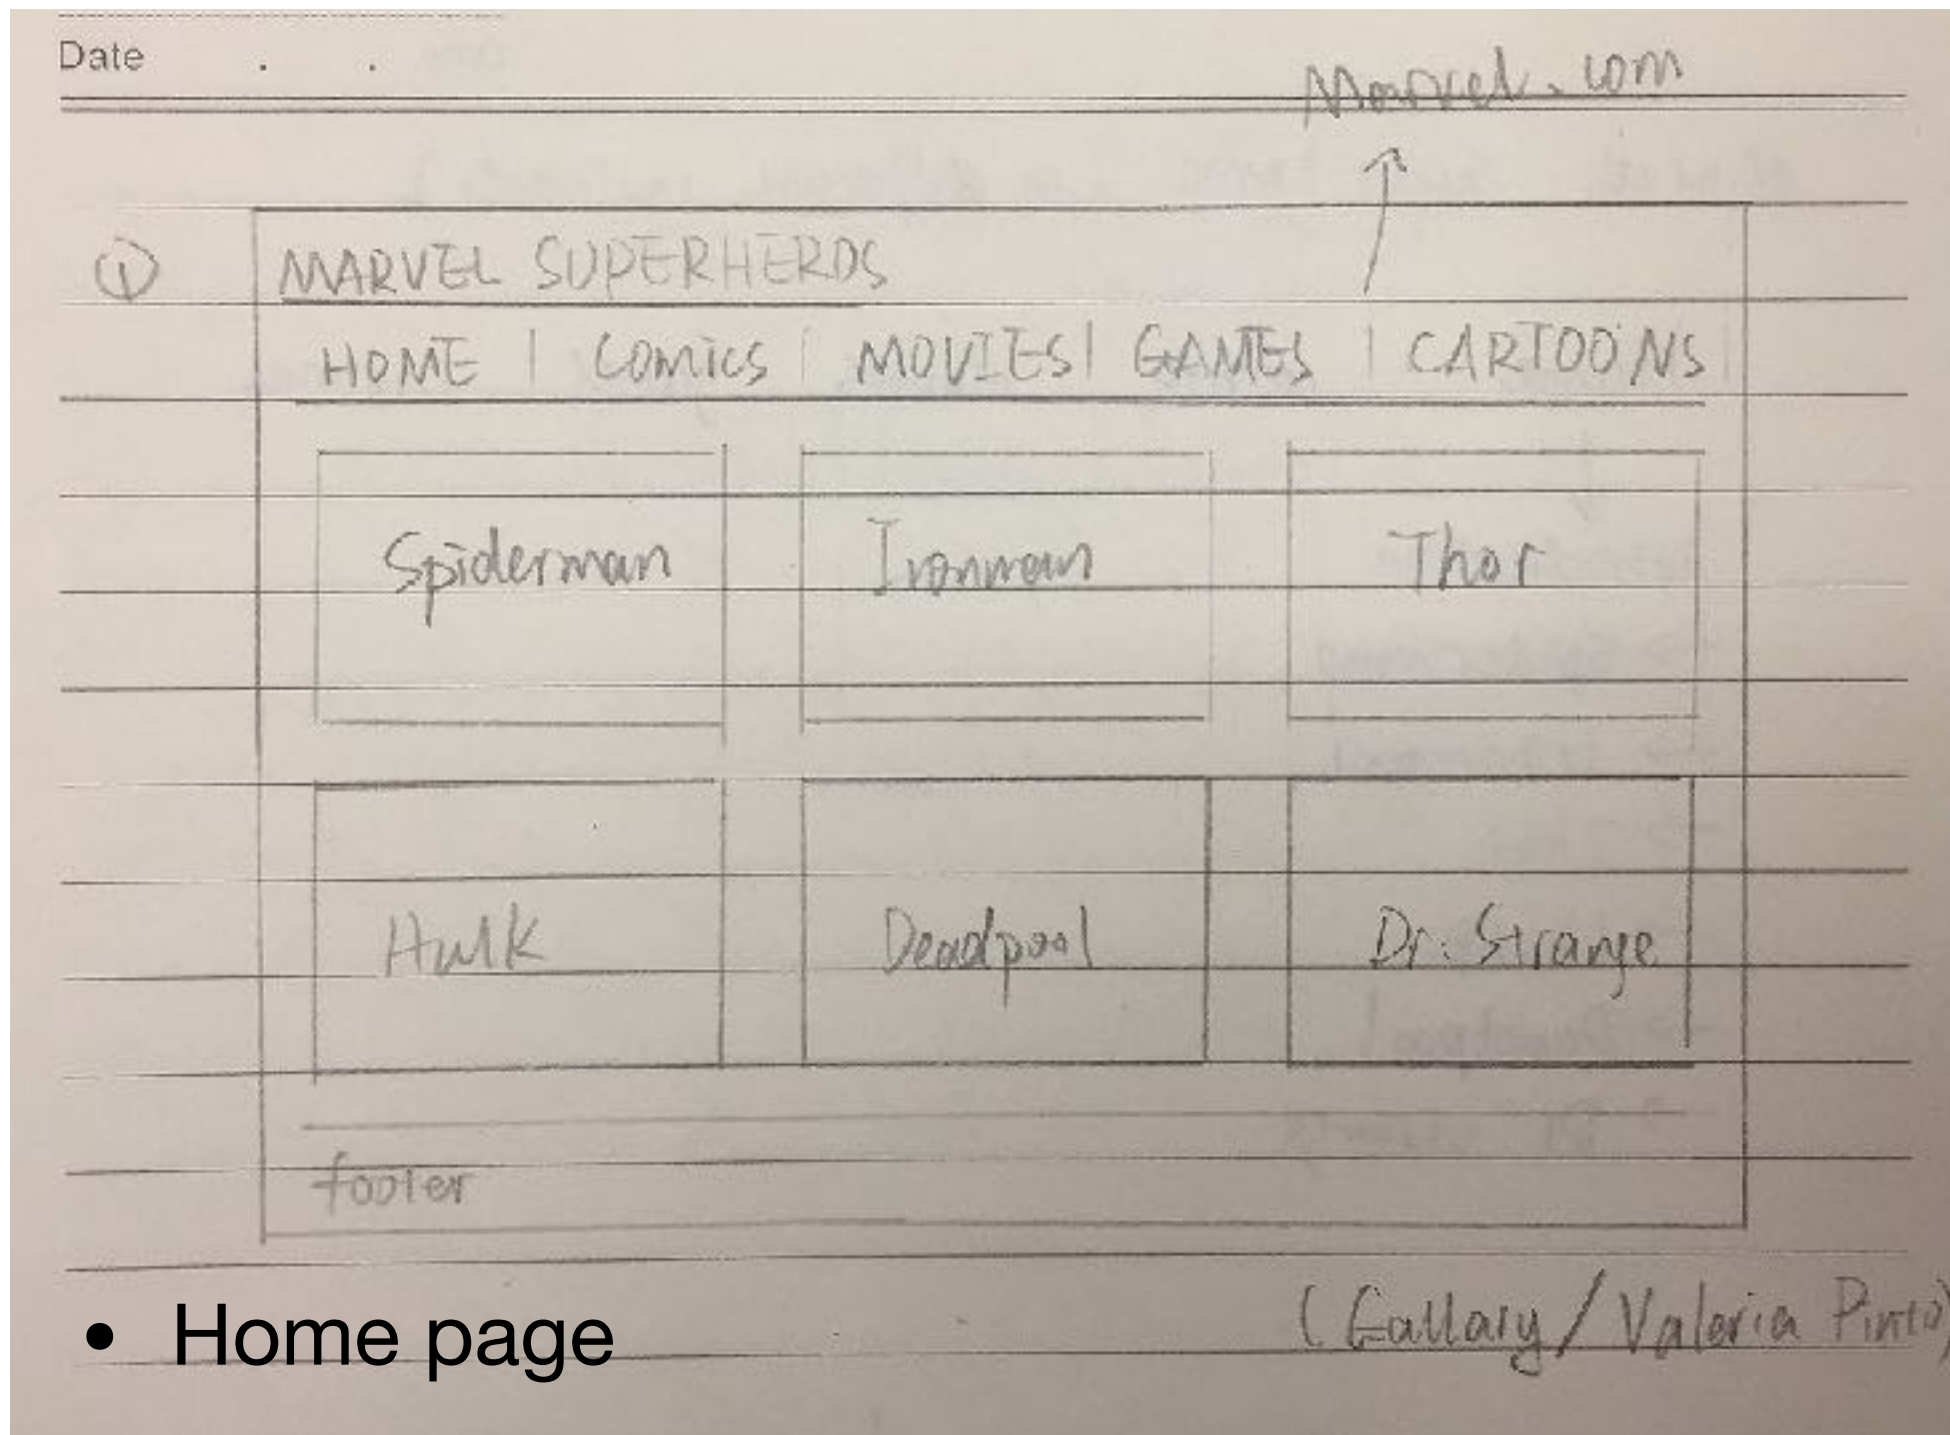 Date . .
Marvel.com
① MARVEL SUPERHEROS
HOME | COMICS | MOVIES | GAMES | CARTOONS |
Spiderman Ironman Thor
Hulk Deadpool Dr. Strange
footer
(Gallary / Valeria Pinto)
• Home page